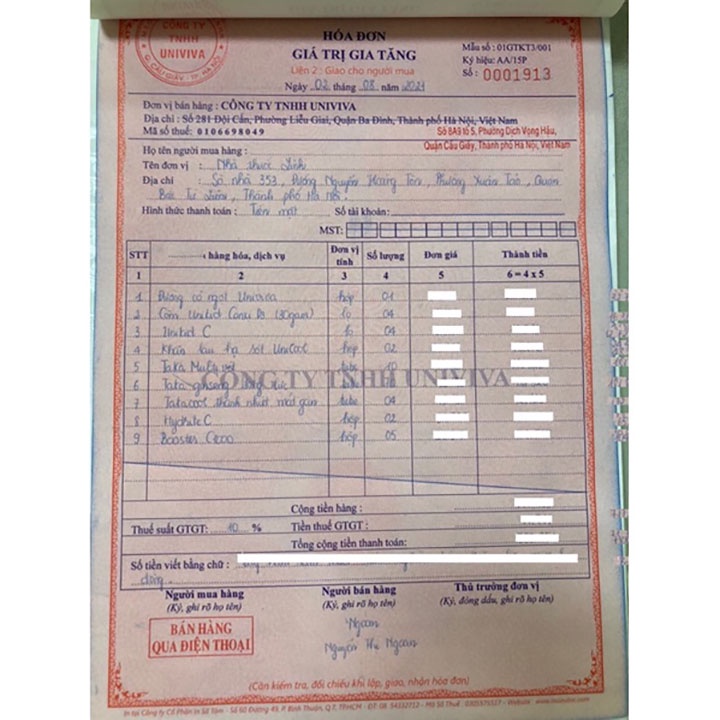 CÔNG TY
TNHH
UNIVIVA
Q. CẦU GIẤY - TP. HÀ NỘI
HÓA ĐƠN
GIÁ TRỊ GIA TĂNG
Liên 2 : Giao cho người mua
Ngày 02 tháng 08 năm 2021
Mẫu số : 01GTKT3/001
Ký hiệu: AA/15P
Số : 0001913
Đơn vị bán hàng : CÔNG TY TNHH UNIVIVA
Địa chỉ : Số 281 Đội Cấn, Phường Liễu Giai, Quận Ba Đình, Thành phố Hà Nội, Việt Nam
Mã số thuế: 0106698049
Số 8A9 tổ 5, Phường Dịch Vọng Hậu,
Quận Cầu Giấy, Thành phố Hà Nội, Việt Nam
Họ tên người mua hàng :
Tên đơn vị : Nhà thuốc Linh
Địa chỉ : Số nhà 353, đường Nguyễn Hoàng Tôn, Phường Xuân Tảo, Quận
Bắc Từ Liêm, Thành phố Hà Nội.
Hình thức thanh toán : Tiền mặt Số tài khoản:
MST:
STT hàng hóa, dịch vụ Đơn vị tính Số lượng Đơn giá Thành tiền
1 2 3 4 5 6 = 4 x 5
1 Đường cỏ ngọt Univiva hộp 01
2 Cốm Unikid (30gam) lọ 04
3 Unikid C lọ 04
4 Khăn lau hạ sốt UniCool hộp 02
5 Taka Multy tube 10
6 Taka ginseng
7 Takacool thanh nhiệt mát gan tube 04
8 Hydrite C hộp 02
9 Booster C1000 hộp 05
CÔNG TY TNHH UNIVIVA
Cộng tiền hàng :
Thuế suất GTGT: 10 % Tiền thuế GTGT :
Tổng cộng tiền thanh toán:
Số tiền viết bằng chữ :
đồng.
Người mua hàng Người bán hàng Thủ trưởng đơn vị
(Ký, ghi rõ họ tên) (Ký, ghi rõ họ tên) (Ký, đóng dấu, ghi rõ họ tên)
BÁN HÀNG
QUA ĐIỆN THOẠI
Ngoan
Nguyễn Thị Ngoan
(Cần kiểm tra, đối chiếu khi lập, giao, nhận hóa đơn)
In tại Công ty Cổ Phần In Số Tám - Số 60 Đường 49, P. Bình Thuận, Q.7, TP.HCM - ĐT: 08. 54332712 - Mã Số Thuế :